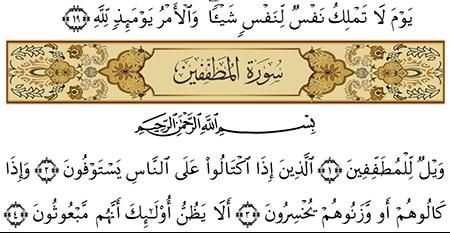 يَوْمَ لَا تَمْلِكُ نَفْسٌ لِّنَفْسٍ شَيْـًٔا ۖ وَالْأَمْرُ يَوْمَئِذٍ لِّلَّهِ ﴿١٩﴾
سُورَةُ الْمُطَفِّفِينَ
بِسْمِ اللَّهِ الرَّحْمَٰنِ الرَّحِيمِ
وَيْلٌ لِّلْمُطَفِّفِينَ ﴿١﴾ الَّذِينَ إِذَا اكْتَالُوا عَلَى النَّاسِ يَسْتَوْفُونَ ﴿٢﴾ وَإِذَا
كَالُوهُمْ أَو وَّزَنُوهُمْ يُخْسِرُونَ ﴿٣﴾ أَلَا يَظُنُّ أُولَٰئِكَ أَنَّهُم مَّبْعُوثُونَ ﴿٤﴾